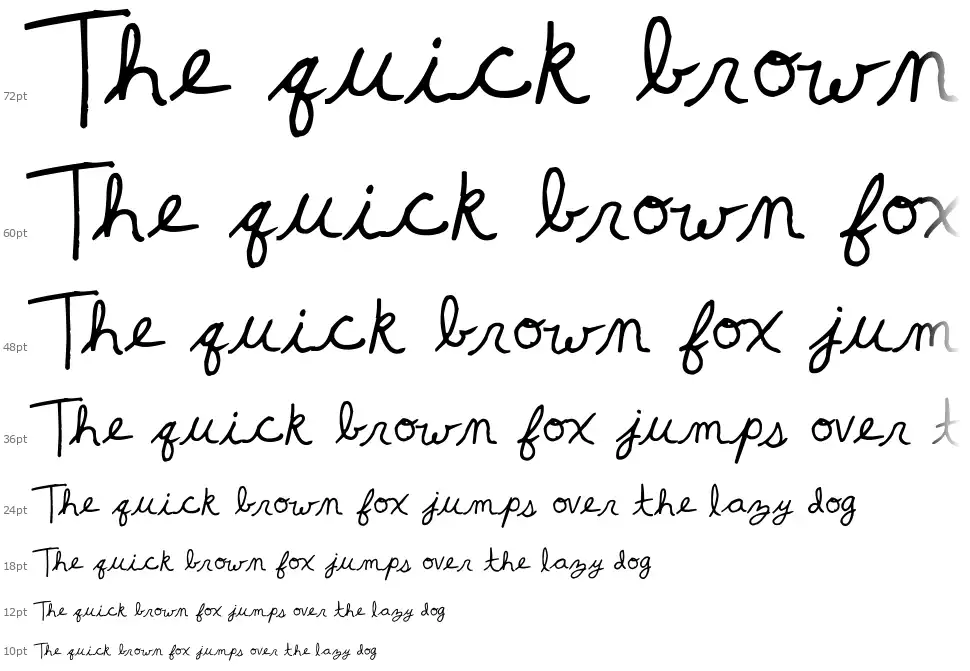 72pt The quick brown
60pt The quick brown fox
48pt The quick brown fox jum
36pt The quick brown fox jumps over t
24pt The quick brown fox jumps over the lazy dog
18pt The quick brown fox jumps over the lazy dog
12pt The quick brown fox jumps over the lazy dog
10pt The quick brown fox jumps over the lazy dog